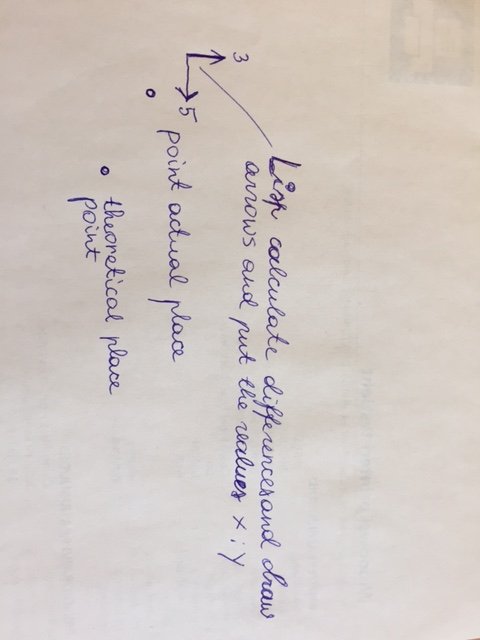 Lisp calculate differences and draw
arrows and put the values x ; y
3
5
point actual place
theoretical place
point